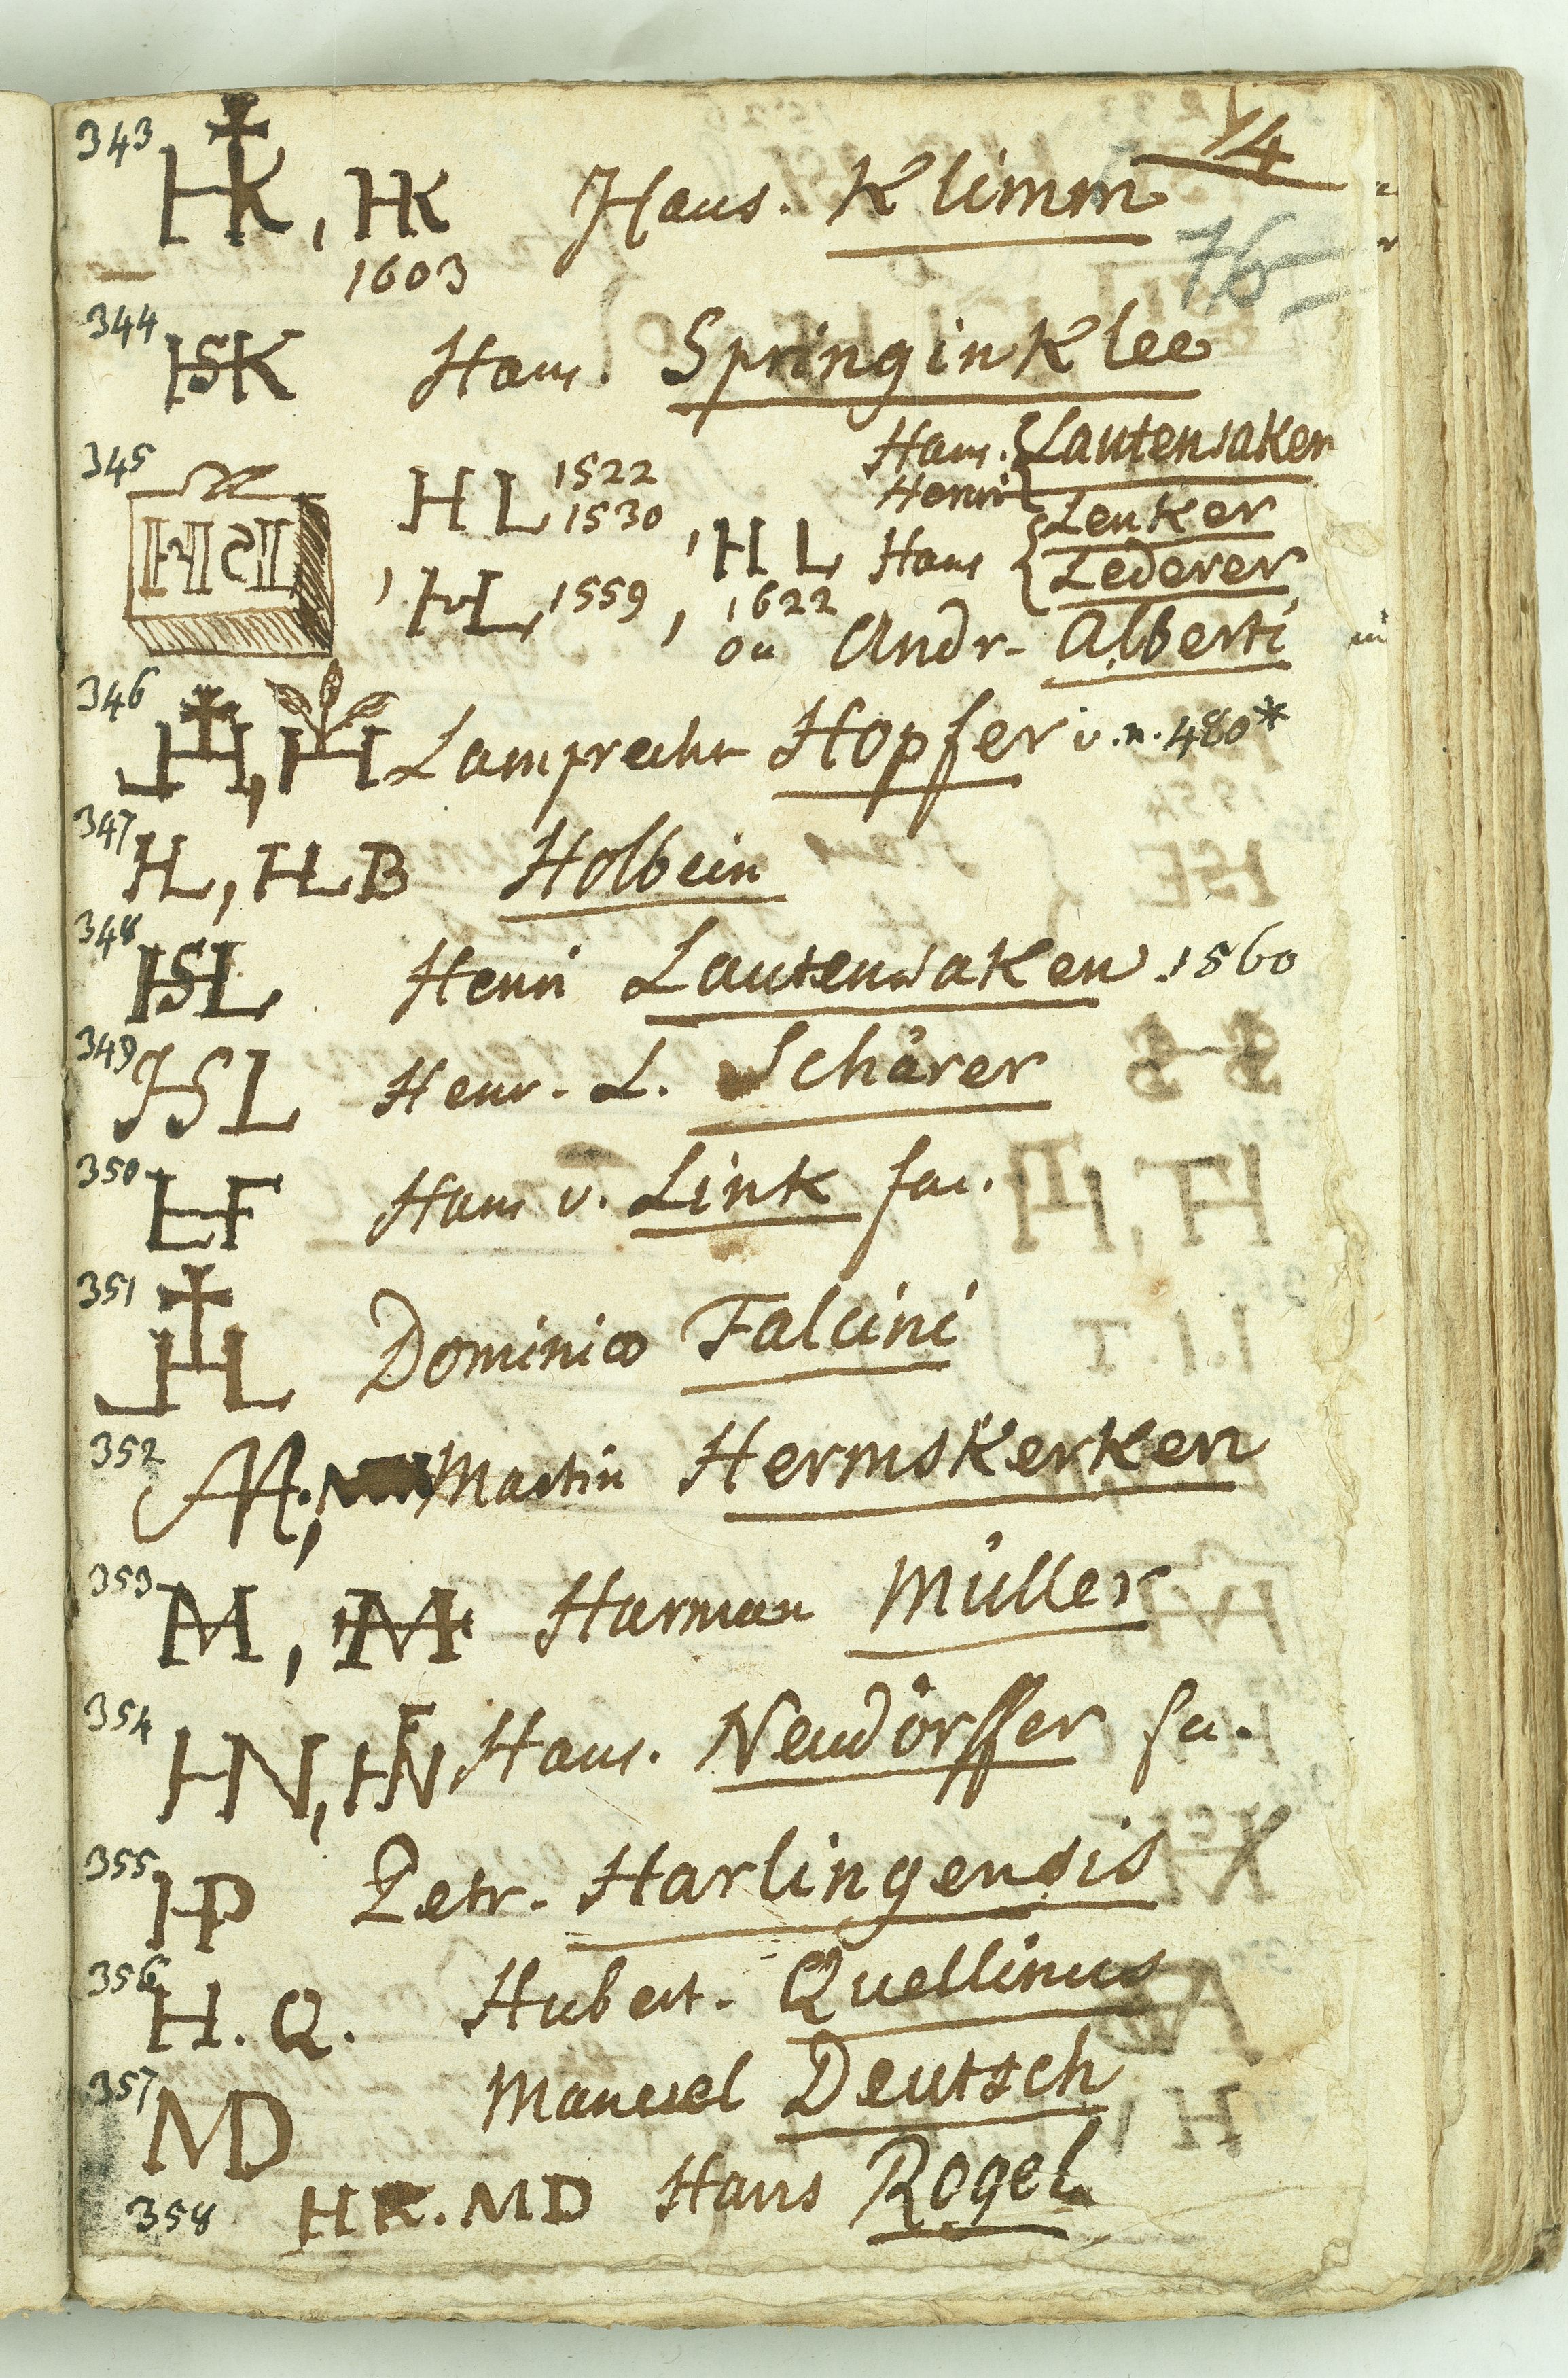 74
343 HK, HK Hans. Klimm
1603
76
344 HSK Hans. Springinklee
345 HSL HL 1522 1530 Hans. Lautensaken
Henri
, HL 1559, HL 1622 Hans Lenker
Lederer
ou Andr. Alberti
346 H, H Lamprecht Hopfer v. n. 480*
347 HL, HLB Holbein
348 HSL Henri Lautensaken 1560
349 HSL Henr. L. Schärer
350 LF Hans v. Link fac.
351 HL Dominico Falcini
352 Martin Hermskerken
353 M, HM Harman Müller
354 HN, HN Hans. Neudörffer fa.
355 HP Petr. Harlingensis X
356 H. Q. Hubert. Quellinus
357 MD Manuel Deutsch
358 HR. MD Hans Rogel